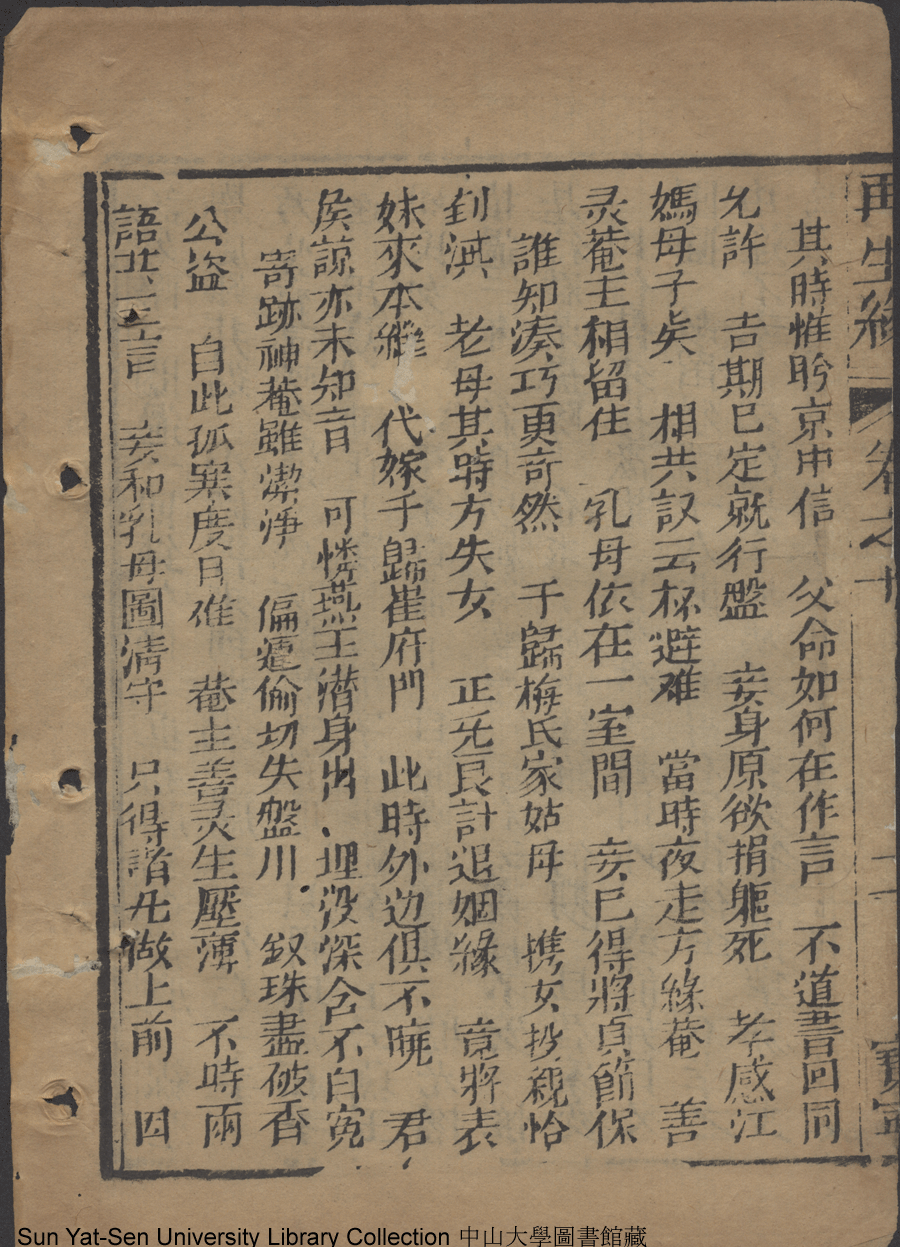 再生緣 卷之十 二 寶寧
其時惟盻京中信 父命如何在作言 不道書回同
允許 吉期已定就行盤 妾身原欲捐軀死 孝感江
媽母子矣 相共议云林避难 當時夜走方緣菴 善
灵菴主相留住 乳母依在一室間 妾已得將貞節保
誰知湊巧更奇然 于歸梅氏家姑母 携女投親恰
到滇 老母其時方失女 正無良計退姻緣 竟將表
妹來本繼 代嫁于歸崔府門 此時外边俱不曉 君
侯諒亦未知音 可憐燕王潜身出 埋没深含不白寃
寄跡神菴雖潔淨 偏遭偷切失盤川 釵珠盡破香
公盜 自此孤寒度日难 菴主善灵生壓薄 不時兩
語共三言 妾和乳母圖清守 只得諧先做上前 因
Sun Yat-Sen University Library Collection 中山大學圖書館藏